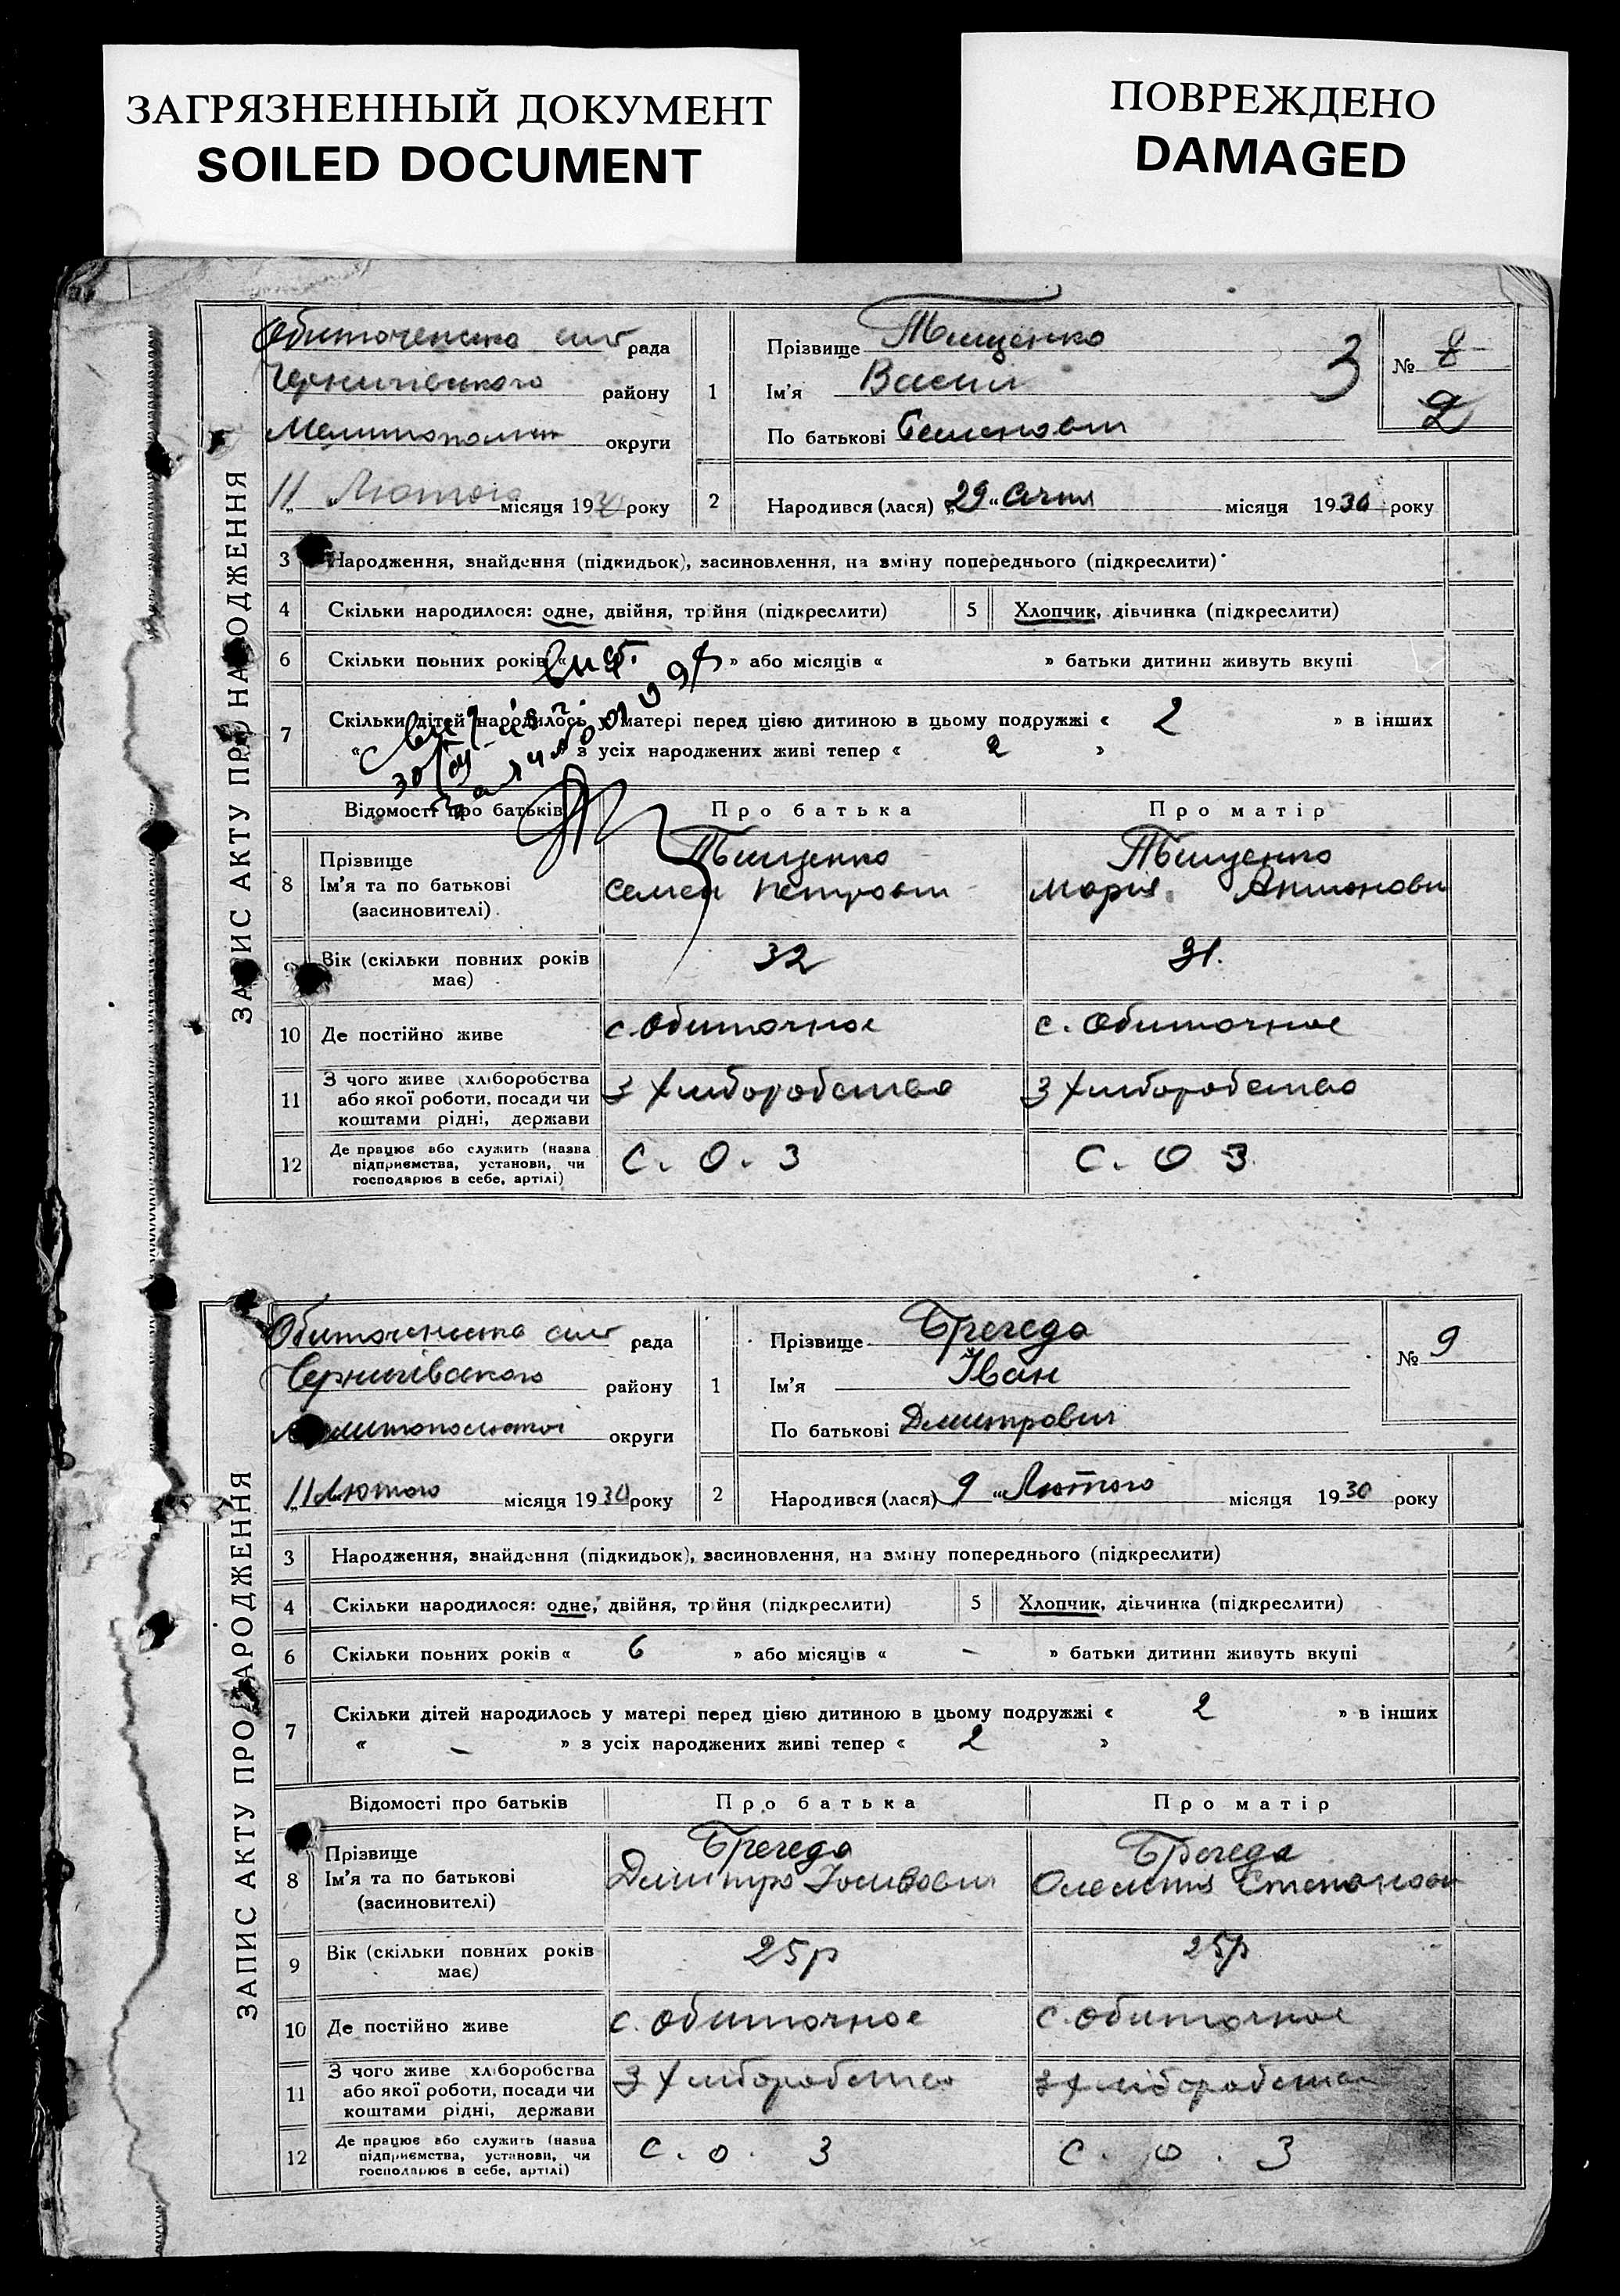 ЗАГРЯЗНЕННЫЙ ДОКУМЕНТ
SOILED DOCUMENT
ПОВРЕЖДЕНО
DAMAGED
ЗАПИС АКТУ ПРО НАРОДЖЕННЯ
рада
Чернигівського району
округи
11 Лютого місяця 19 року
1 Прізвище Тищенко
Ім'я Васил
По батькові Семенович
3
№ 8
2
2 Народився (лася) „29“ Січня місяця 1930 року
3 Народження, знайдення (підкидьок), засиновлення, на зміну попереднього (підкреслити)
4 Скільки народилося: одне, двійня, трійня (підкреслити) 5 Хлопчик, дівчинка (підкреслити)
6 Скільки повних років « » або місяців « » батьки дитини живуть вкупі
7 Скільки дітей народилось у матері перед цією дитиною в цьому подружжі « 2 » в інших
« з усіх народжених живі тепер « 2 »
Відомості про батьків Про батька Про матір
8 Прізвище Ім'я та по батькові (засиновителі) Тищенко Семен Петрович Тищенко Мария Антонови
9 Вік (скільки повних років має) 32 31.
10 Де постійно живе с. Обиточное с. Обиточное
11 З чого живе (хліборобства або якої роботи, посади чи коштами рідні, держави З хлиборобства З хлиборобства
12 Де працює або служить (назва підприємства, установи, чи господарює в себе, артілі) С. О. З С. О З
ЗАПИС АКТУ ПРО НАРОДЖЕННЯ
рада
Чернигівского району
округи
11 Лютого місяця 1930 року
1 Прізвище Брегеда
Ім'я Іван
По батькові Дмитрович
№ 9
2 Народився (лася) 9 “ Лютого місяця 1930 року
3 Народження, знайдення (підкидьок), засиновлення, на зміну попереднього (підкреслити)
4 Скільки народилося: одне, двійня, трійня (підкреслити) 5 Хлопчик, дівчинка (підкреслити)
6 Скільки повних років « 6 » або місяців « - » батьки дитини живуть вкупі
7 Скільки дітей народилось у матері перед цією дитиною в цьому подружжі « 2 » в інших
« - » з усіх народжених живі тепер « 2 »
Відомості про батьків Про батька Про матір
8 Прізвище Ім'я та по батькові (засиновителі) Брегеда Дмитро Брегеда
9 Вік (скільки повних років має) 25р 25р
10 Де постійно живе с. Обиточное с. Обиточное
11 З чого живе (хліборобства або якої роботи, посади чи коштами рідні, держави З хлиборобства З хлиборобства
12 Де працює або служить (назва підприємства, установи, чи господарює в себе, артілі) С. О. З С. О. З